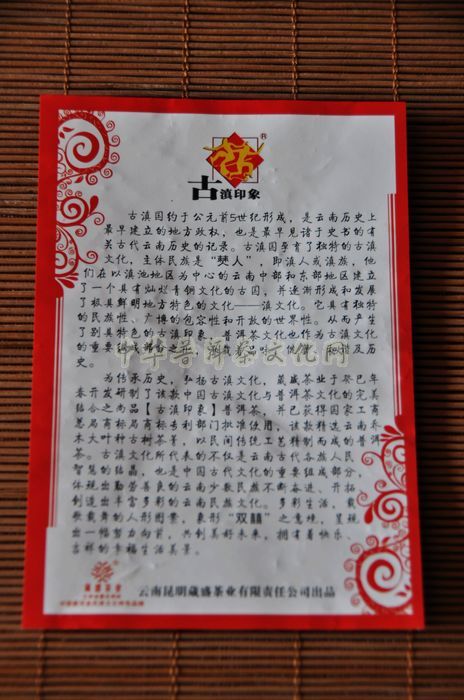 ®
古滇印象
古滇国约于公元前5世纪形成，是云南历史上
最早建立的地方政权，也是最早见诸于史书的有
关古代云南历史的记录。古滇国孕育了独特的古滇
文化，主体民族是“僰人”，即滇人或滇族，他
们在以滇池地区为中心的云南中部和东部地区建立
了一个具有灿烂青铜文化的古国，并逐渐形成和发展
了极具鲜明地方特色的文化——滇文化。它具有独特
的民族性、广博的包容性和开放的世界性。从而产生
了别具特色的古滇印象。普洱茶文化作为古滇文化
的重要组成部分，
史。
中华普洱茶文化网
为传承历史，弘扬古滇文化，葳盛茶业于癸巳年
春开发研制了该款中国古滇文化与普洱茶文化的完美
结合之尚品【古滇印象】普洱茶，并已获得国家工商
总局商标局商标专利部门批准使用，该款精选云南乔
木大叶种古树茶菁，以民间传统工艺精制而成的普洱
茶。古滇文化所代表的不仅是云南古代各族人民
智慧的结晶，也是中国古代文化的重要组成部分，
体现出勤劳善良的云南少数民族不断奋进、开拓
创造出丰富多彩的云南民族文化。多彩生活，载
歌载舞的人形图案，象形“双囍”之意境，呈现
出一幅努力向前，共创美好未来，拥有着快乐、
吉祥的幸福生活美景。
云南昆明葳盛茶业有限责任公司出品